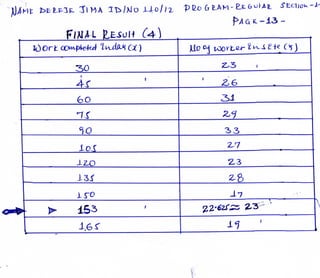 NAME DEREJE JIMA ID/NO 110/12 PROGRAM-REGULAR SECTION-1
PAGE-13-
FINAL RESULT (4)
Work completed Index(x) No of worker in site (y)
30 23
45 26
60 31
75 29
90 33
105 27
120 23
135 28
150 17
153 22.625 ≈ 23
165 19